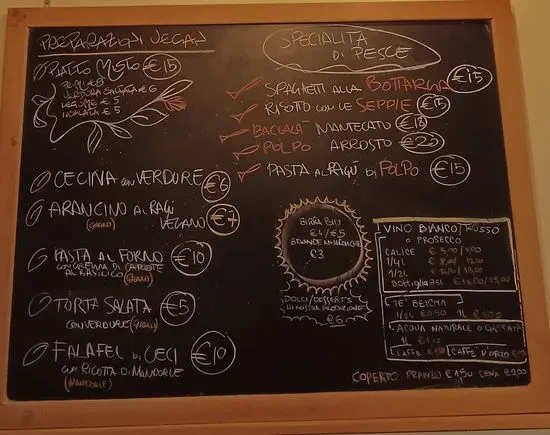 PREPARAZIONI VEGAN
PIATTO MISTO €15
VERDURA SALTATA €6
LEGUMI €5
INSALATA €5
CECINA con VERDURE €6
ARANCINO AL RAGÙ €7
VEGANO
(GRANO)
PASTA AL FORNO €10
CON CREMA DI CAROTE
AL BASILICO (GRANO)
TORTA SALATA €5
CON VERDURE (GRANO)
FALAFEL DI CECI €10
CON RICOTTA DI MANDORLE
(MANDORLE)
SPECIALITÀ
DI PESCE
SPAGHETTI ALLA BOTTARGA €15
RISOTTO CON LE SEPPIE €15
BACCALÀ MANTECATO €18
POLPO ARROSTO €20
PASTA AL RAGÙ DI POLPO €15
BIRRA BIO
€4/€5
BEVANDE ANALCOLICHE
€3
DOLCI/DESSERTS
DI NOSTRA PRODUZIONE
€6
VINO BIANCO/ROSSO
O PROSECCO
CALICE
1/4L
1/2L
BOTTIGLIA
TE' BEICHA
1/2L €0.50 1L
ACQUA NATURALE O GASSATA
1L
CAFFÈ CAFFÈ D'ORZO
COPERTO PRANZO €1,50 CENA €2.00